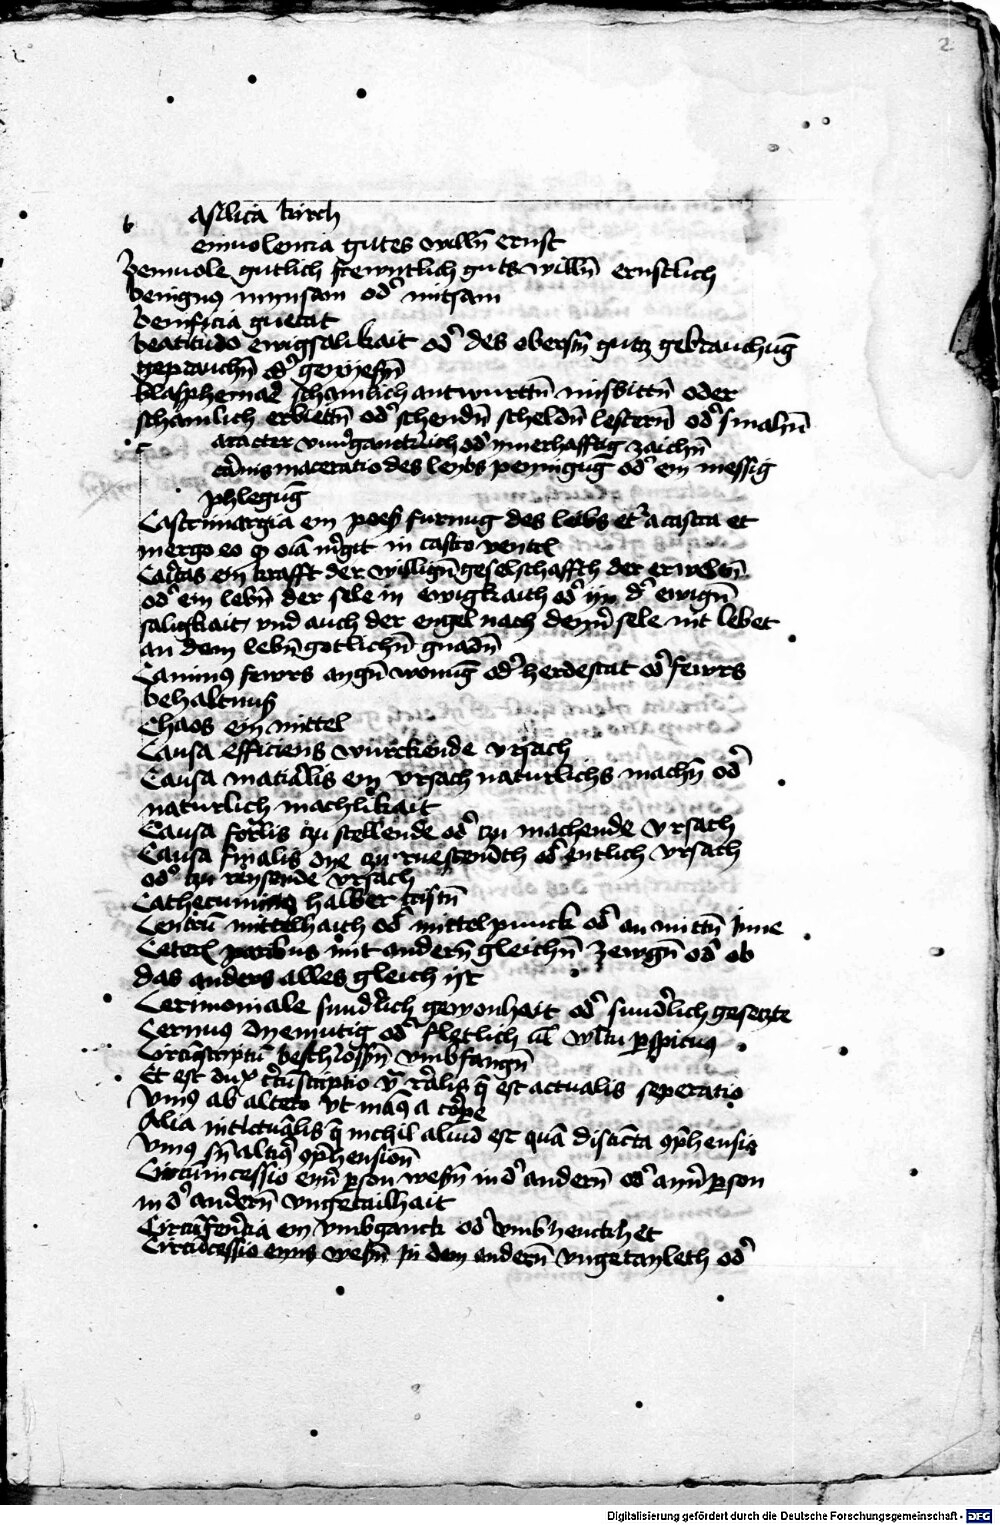 2
b asilica kirch
eniuolencia gutes willn̄ ernst
Beniuole gutlich frewntlich guts willn̄ ernstlich
benignus mynsam od' mitsam
benificia guetat
beatitudo ewigsalikait od' des oberstn̄ gutz gebrauchūg
geprauchn̄ od' genyesn̄
blasphemare schamlich antwurttn̄ misbittn̄ oder
schamlich erbiettn̄ od' schendn̄ scheldn̄ lestern̄ od' smahn̄
c aracter vnuergancklich od' ymerhafftig zaichn̄
carnis maceratio des leybs peynigūg od' ein messig
phlegūg
Castrimargia ein poess furnug des leibs et' a castra et
mergo eo qꝫ oīa m'git in castro ventris
Caritas ein krafft der willign̄ geselschafft der erweltn̄
od' ein lebn̄ der sele in ewigkaith od' yn d' ewign̄
saligkait, vnd auch der engel nach dem die sele nit lebet
an dem lebn̄ gotlichn̄ gnadn̄
Caminus fewrs aygn̄ wonūg od' herdestat od' fewrs
behaltnuss
Chaos ein mittel
Causa efficiens wurckende vrsach
Causa mat'ialis ein vrsach naturlichs machn̄ od'
naturlich machlikait
Causa for'lis tzu stellende od' tzu machende vrsach
Causa finalis dye tzu ruestendth od' entlich vrsach
od' tzu raysende vrsach
Cathecuminus halber cristn̄
Centrū mittelhaith od' mittelpunck od' an mittn̄ inne
Ceteris paribus mit andern̄ gleichn̄ zewgn̄ od' ob
das anders alles gleich ist
Cerimoniale sund'lich gewonhait od' sund'lich gesetzte
Cernuus dyemutig od' fletlich ul' wltu p̱spicuus
Circūscriptū beschlossn̄ vmbfangn̄
Et est dux c'cūscriptio vꝫ r'alis q̄ est actualis seperatio
vnius ab altero vt man9 a coṟpe
Alia intellectualis q̄ nichil aliud est quā disticta ꝯp̄hensis
vnius sn̄ alti9 ꝯp̄hension̄
Circūincessio einer p̱son wesn̄ in d' andern̄ od' ayn̄ p̱son
in d' andern̄ vngetailhait
Circūferēcia ein vmbganck od' vmbhenckhet
Circūcessio eyns wesn̄ in dem andern̄ vngetayleth od'
Digitalisierung gefördert durch die Deutsche Forschungsgemeinschaft - DFG